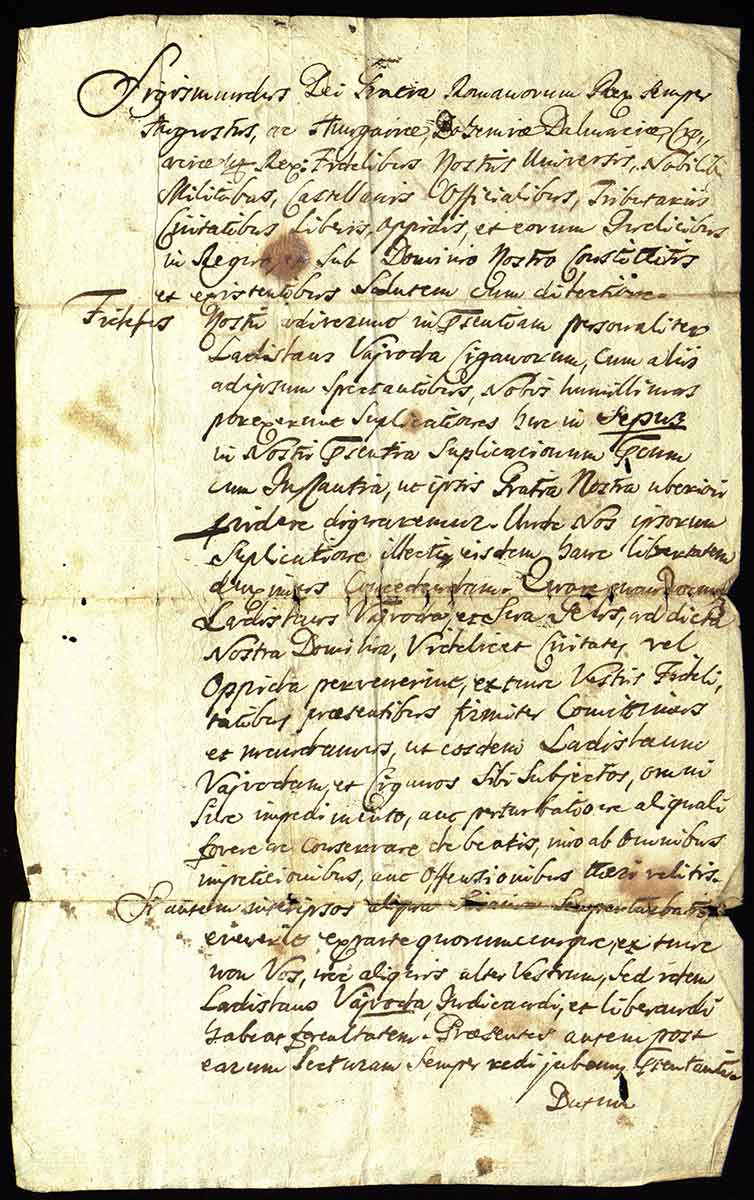 Sigismundus Dei Gratia Romanorum Rex semper
Augustus, ac Hungariae, Bohemiae Dalmaciae, Cro„
Rex: Fidelibus Nostris Universis, Nobilib
Militibus, Castellanis Officialibus, Tributariis
Civitatibus Liberis, Oppidis, et eorum Judicibus
in Regno, et sub Dominio Nostro Constitutis
et existentibus Salutem cum dilectione.
Fideles Nostri adiverunt in personaliter
Ladislaus Vajvoda Ciganorum, cum aliis
ad ipsum Spectantibus, Nobis humillimas
porexerunt Suplicationes huc in Sepus
in Nostri Suplicacionum
cum Instantia, ut ipsis Gratia Nostra uberiori
providere dignaremur. Unde Nos ipsorum
Suplicatione illecti, eisdem hanc libertatem
duximus Concedendam. Quare quandocunq
Ladislaus Vajvoda, et Sua Gens, ad dicta
Nostra Dominia, Videlicet Civitates, vel
Oppida pervenerint, ex tunc Vestris Fideli„
tatibus praesentibus firmiter Comittimus
et mandamus, ut eosdem Ladislaum
Vajvodam, et Ciganos Sibi Subjectos, omni
Sine impedimento, aut perturbatione aliquali
fovere ac conservare debeatis, imo ab Omnibus
impeticionibus, aut Offensionibus tueri velitis.
Si autem inter ipsos aliqua
evenerit ex parte quorumcunque, ex tunc
non Vos, nec aliquis alter Vestrum, Sed idem
Ladislaus Vajvoda, Judicandi, et liberandi
habeat facultatem. Praesentes autem post
earum Lecturam Semper redi jubemus
Datum